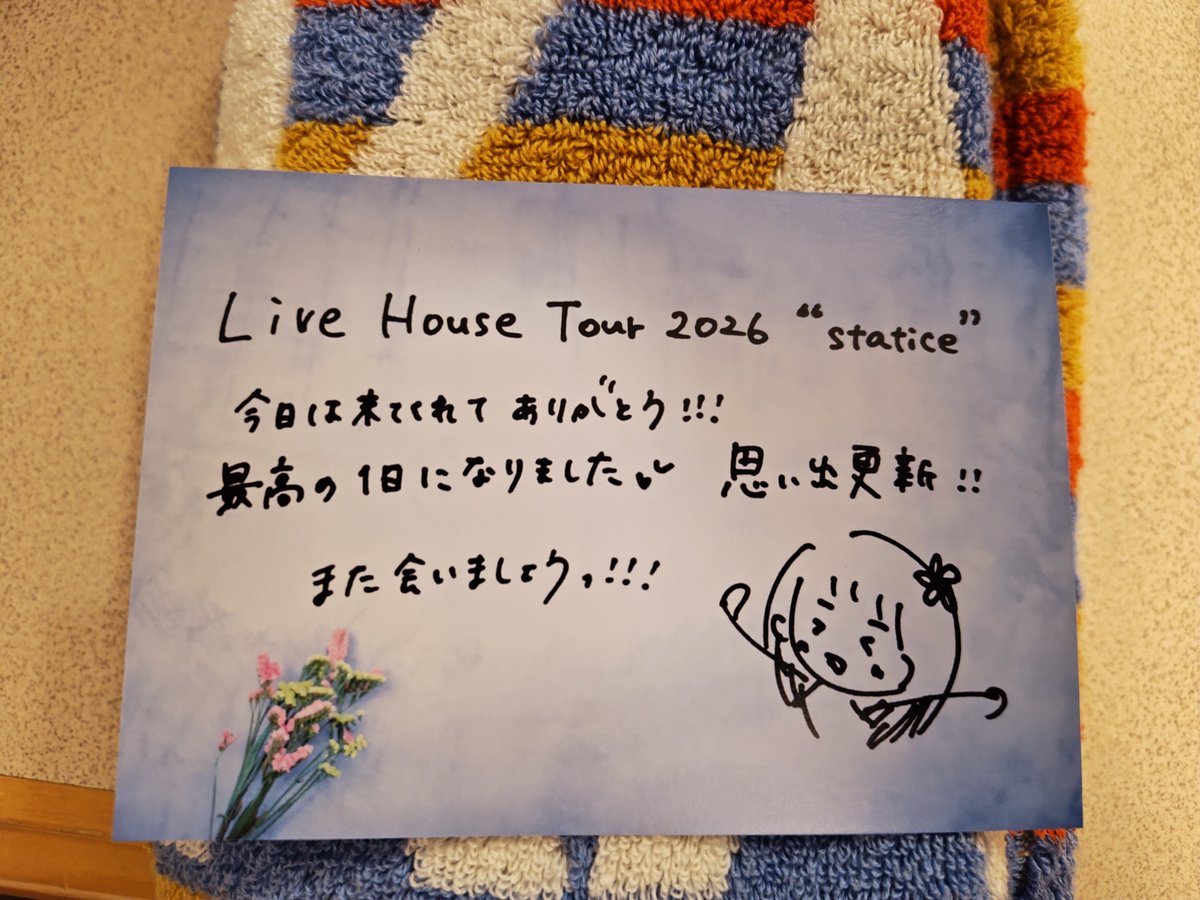 Live House Tour 2026 “statice”
今日は来てくれて ありがとう!!!
最高の1日になりました♥ 思い出更新!!
また会いましょうっ!!!